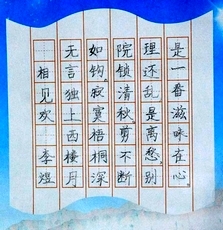 相见欢 李煜
无言独上西楼月
如钩。寂寞梧桐深
院锁清秋剪不断
理还乱是离愁别
是一番滋味在心